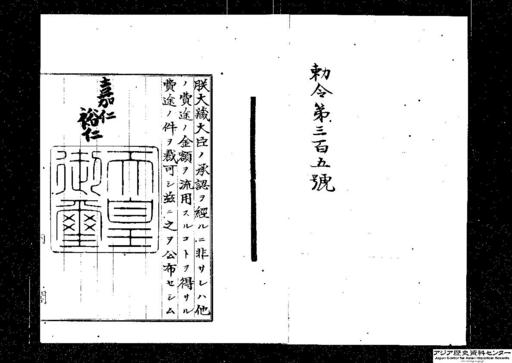 勅令第三百五號
朕大藏大臣ノ承認ヲ經ルニ非サレハ他
ノ費途ノ金額ヲ流用スルコトヲ得サル
費途ノ件ヲ裁可シ茲ニ之ヲ公布セシム
嘉仁
裕仁
天皇
御璽
アジア歴史資料センター
Japan Center for Asian Historical Records